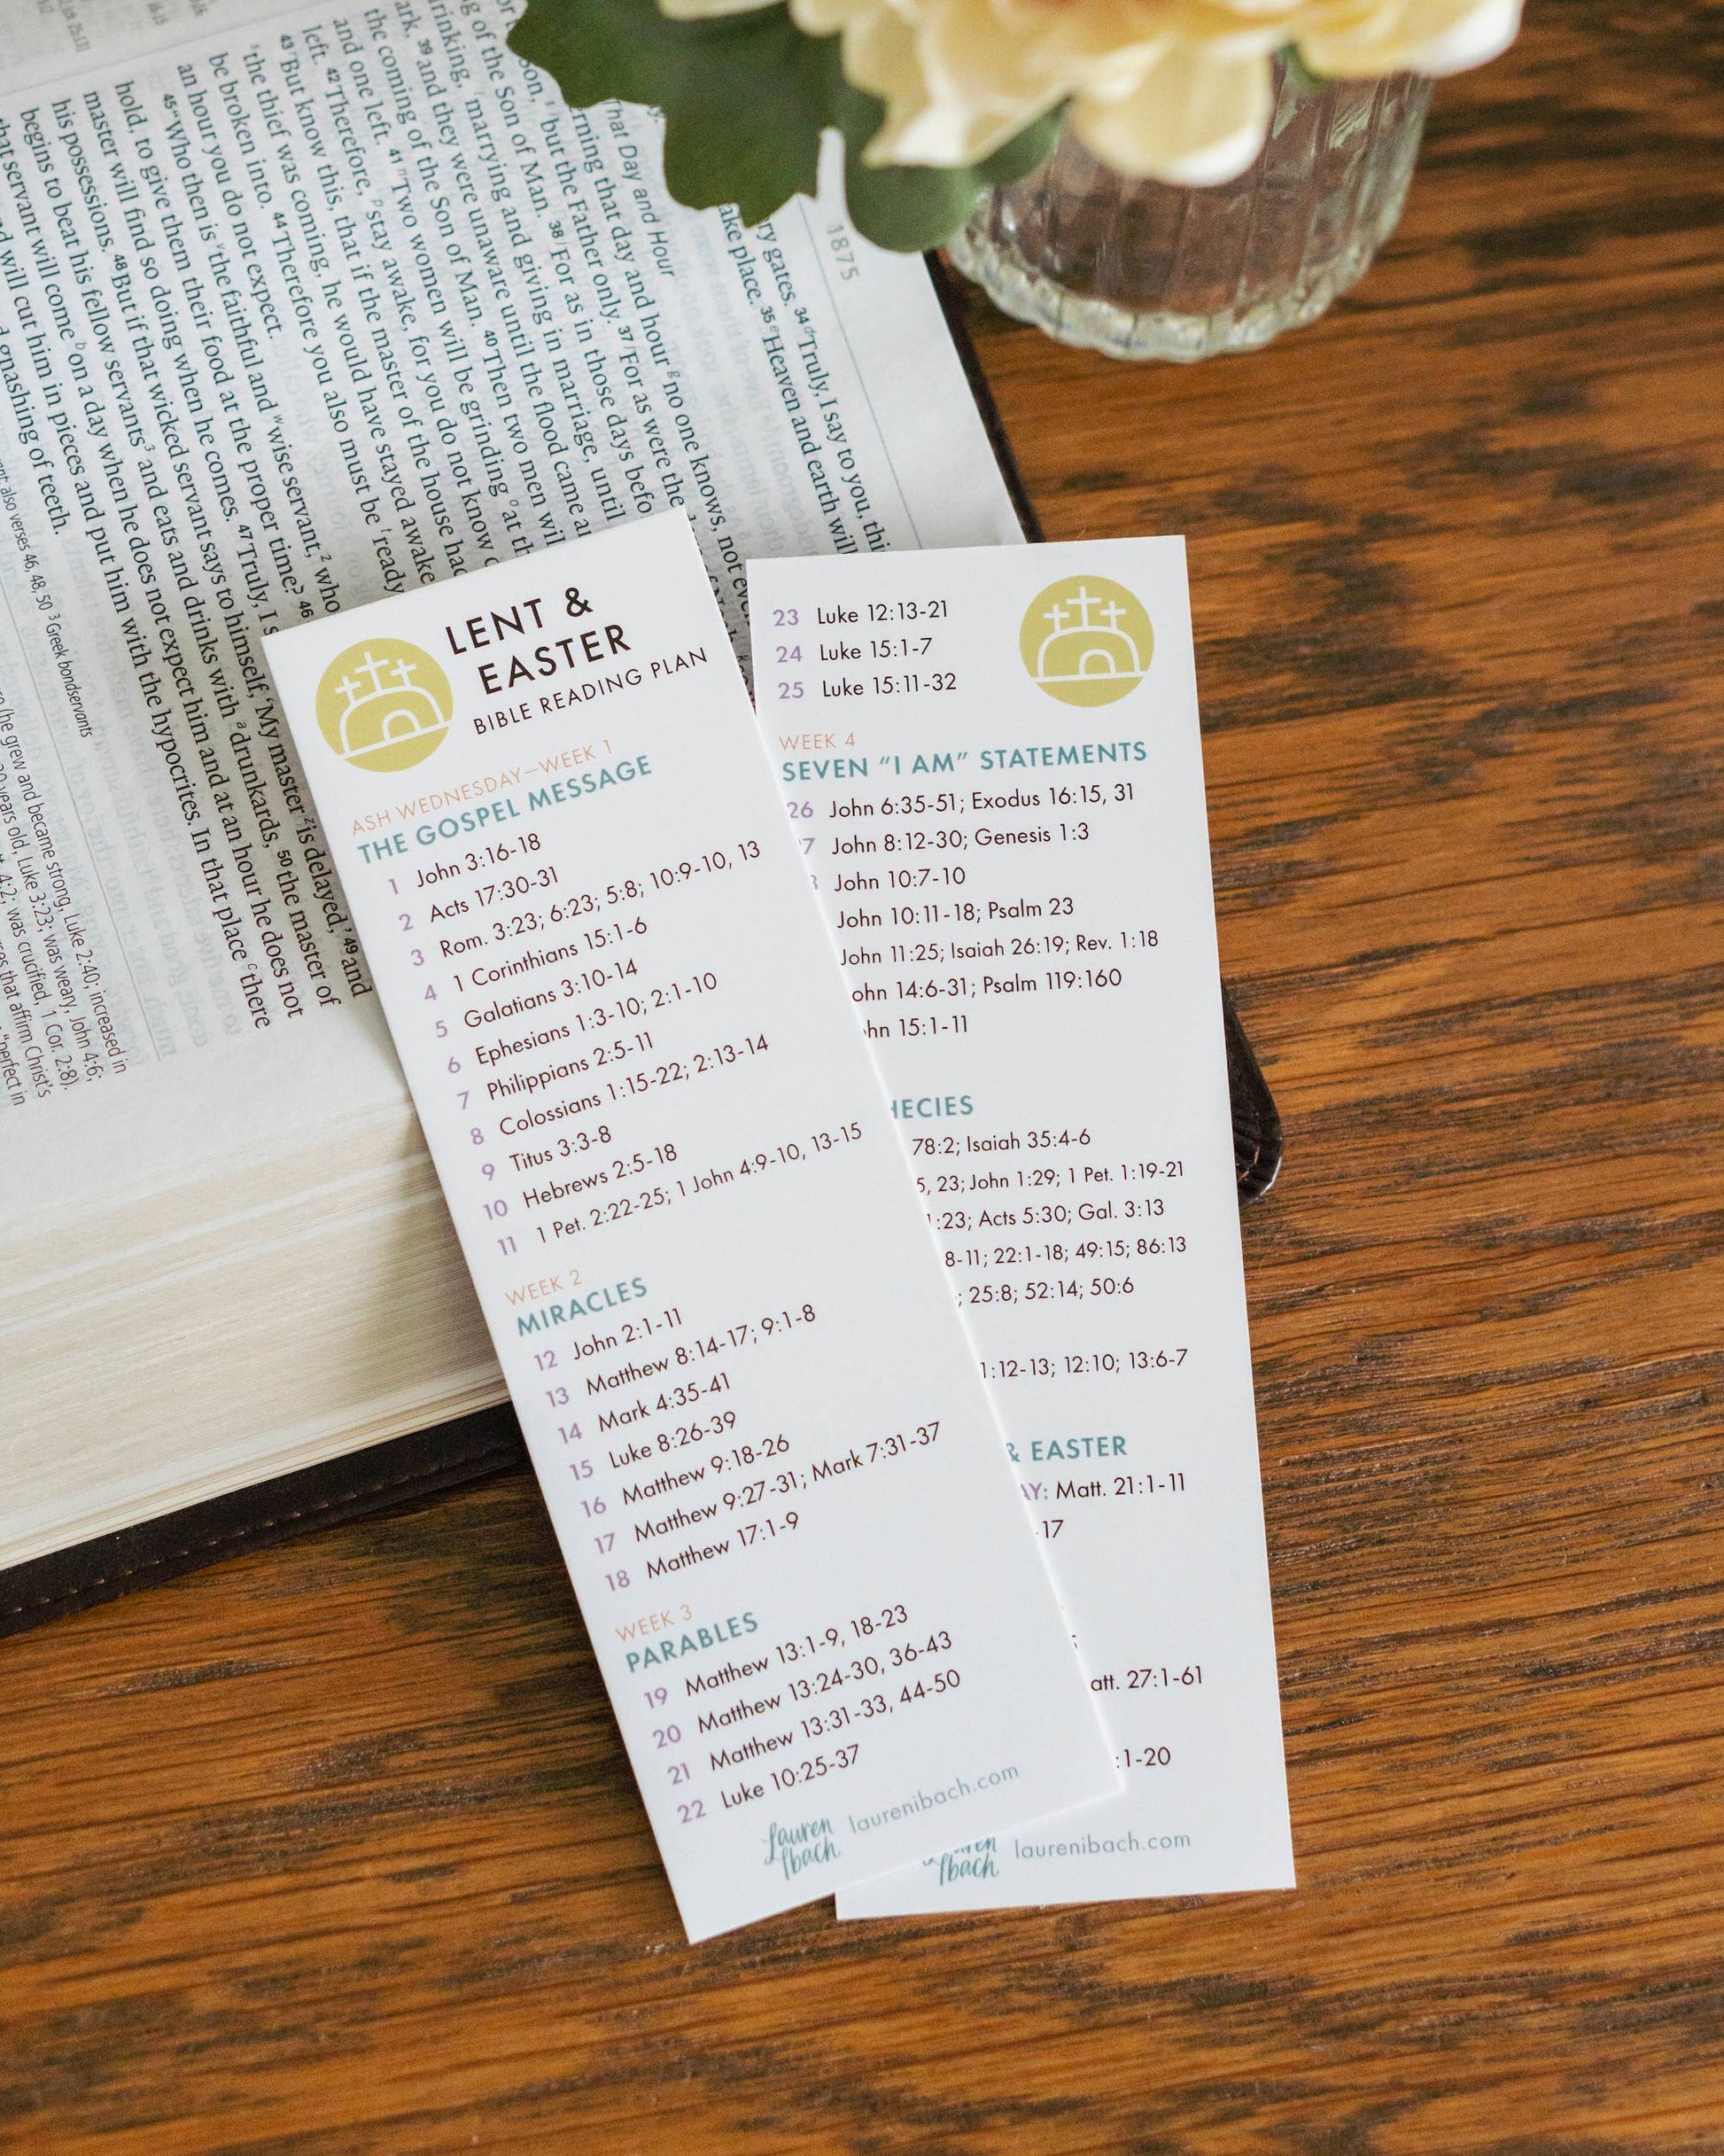 LENT &
EASTER
BIBLE READING PLAN
ASH WEDNESDAY—WEEK 1
THE GOSPEL MESSAGE
1 John 3:16-18
2 Acts 17:30-31
3 Rom. 3:23; 6:23; 5:8; 10:9-10, 13
4 1 Corinthians 15:1-6
5 Galatians 3:10-14
6 Ephesians 1:3-10; 2:1-10
7 Philippians 2:5-11
8 Colossians 1:15-22; 2:13-14
9 Titus 3:3-8
10 Hebrews 2:5-18
11 1 Pet. 2:22-25; 1 John 4:9-10, 13-15
WEEK 2
MIRACLES
12 John 2:1-11
13 Matthew 8:14-17; 9:1-8
14 Mark 4:35-41
15 Luke 8:26-39
16 Matthew 9:18-26
17 Matthew 9:27-31; Mark 7:31-37
18 Matthew 17:1-9
WEEK 3
PARABLES
19 Matthew 13:1-9, 18-23
20 Matthew 13:24-30, 36-43
21 Matthew 13:31-33, 44-50
22 Luke 10:25-37
Lauren
Ibach laurenibach.com
23 Luke 12:13-21
24 Luke 15:1-7
25 Luke 15:11-32
WEEK 4
SEVEN "I AM" STATEMENTS
26 John 6:35-51; Exodus 16:15, 31
7 John 8:12-30; Genesis 1:3
John 10:7-10
John 10:11-18; Psalm 23
John 11:25; Isaiah 26:19; Rev. 1:18
ohn 14:6-31; Psalm 119:160
hn 15:1-11
HECIES
78:2; Isaiah 35:4-6
5, 23; John 1:29; 1 Pet. 1:19-21
:23; Acts 5:30; Gal. 3:13
8-11; 22:1-18; 49:15; 86:13
; 25:8; 52:14; 50:6
1:12-13; 12:10; 13:6-7
& EASTER
AY: Matt. 21:1-11
-17
att. 27:1-61
:1-20
Ibach laurenibach.com
1875
34 "Truly, I say to you, thi
ry gates.
35 Heaven and earth will
ake place.
That Day and Hour
no one knows, not eve
rning that day and hour
but the Father only. 37 For as were the
Son,
of the Son of Man. 38 For as in those days befo
drinking, marrying and giving in marriage, until
ark, 39 and they were unaware until the flood came a
the coming of the Son of Man. 40 Then two men wil
and one left. 41 "Two women will be grinding at th
left. 42 Therefore, stay awake, for you do not know
43 But know this, that if the master of the house had
the thief was coming, he would have stayed awake
be broken into. 44 Therefore you also must be ready
an hour you do not expect.
45 "Who then is the faithful and wise servant,2 who
hold, to give them their food at the proper time? 46
master will find so doing when he comes. 47 Truly, I s
his possessions. 48 But if that wicked servant says to himself, 'My master is delayed,' 49 and
begins to beat his fellow servants3 and eats and drinks with drunkards, 50 the master of
that servant will come on a day when he does not expect him and at an hour he does not
will cut him in pieces and put him with the hypocrites. In that place there
gnashing of teeth.
also verses 46, 48, 50 3 Greek bondservants
(he grew and became strong, Luke 2:40; increased in
years old, Luke 3:23; was weary, John 4:6;
4:2; was crucified, 1 Cor. 2:8).
that affirm Christ's
"perfect in